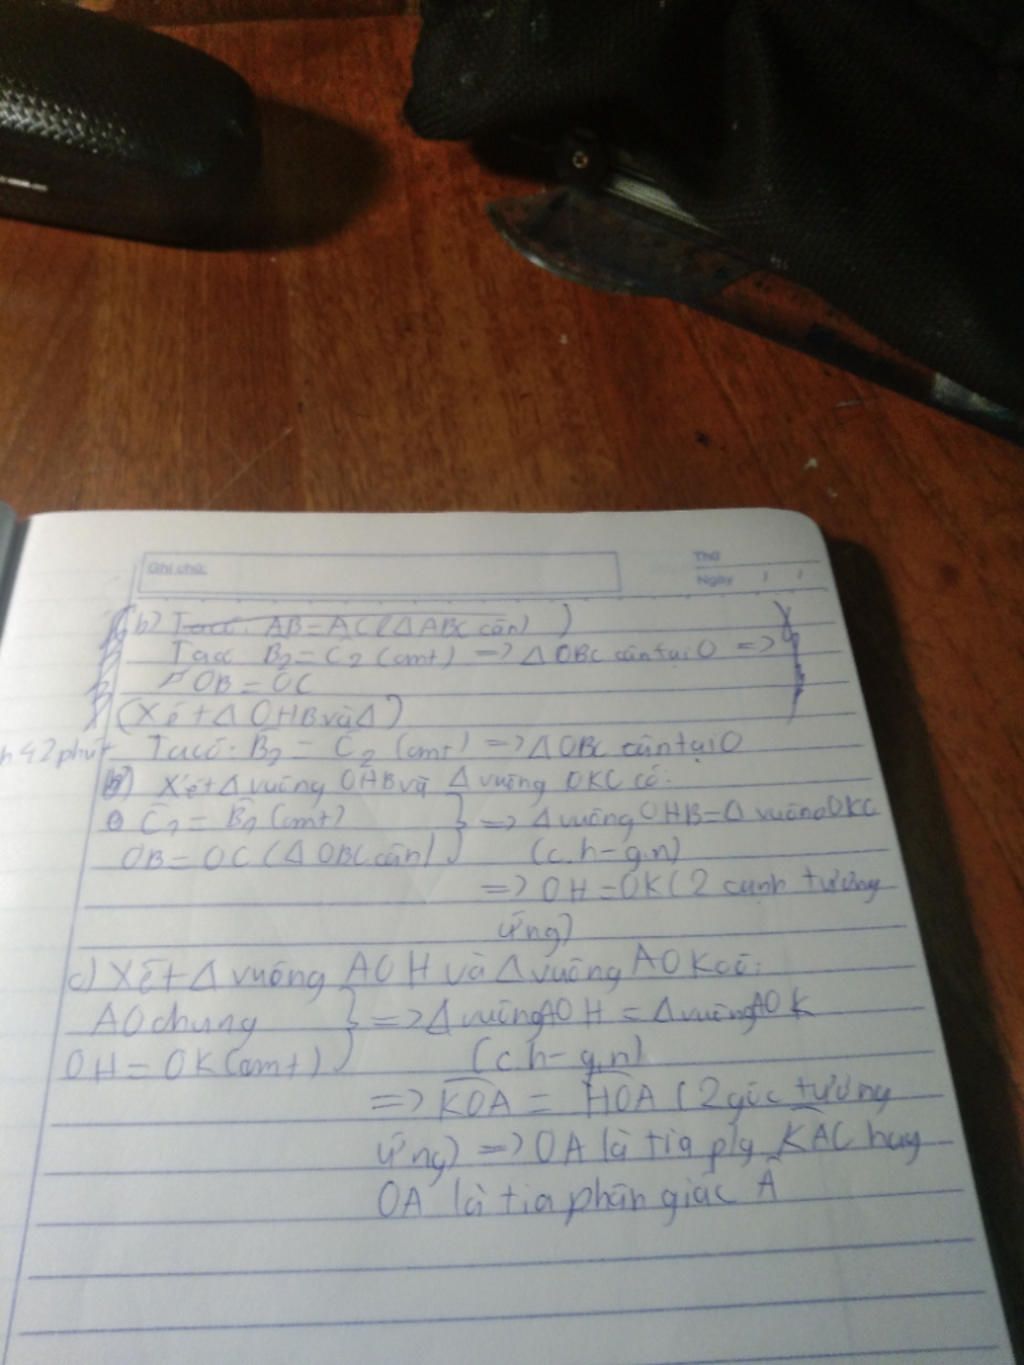 Ghi chú:
Thứ
Ngày / /
b) Ta có: AB = AC (Δ ABC cân) )
Ta có B₂ = C₂ (cmt) => Δ OBC cân tại O =>
OB = OC
(Xét Δ OHB và Δ)
h 42 phút
Ta có: B̂₂ = Ĉ₂ (cmt) => Δ OBC cân tại O
b) Xét Δ vuông OHB và Δ vuông OKC có:
Ĉ₁ = B̂₁ (cmt) } => Δ vuông OHB = Δ vuông OKC
OB = OC (Δ OBC cân) (c.h - g.n)
=> OH = OK (2 cạnh tương
ứng)
c) Xét Δ vuông AOH và Δ vuông AOK có:
AO chung } => Δ vuông AOH = Δ vuông AOK
OH = OK (cmt) (c.h - g.n)
=> KOA = HOA (2 góc tương
ứng) => OA là tia p/g KAC hay
OA là tia phân giác Â